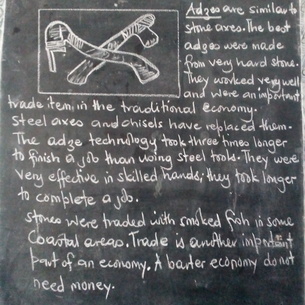 Adzes are similar to
stone axes. The best
adzes were made
from very hard stone.
They worked very well
and were an important
trade item in the traditional economy.
Steel axes and chisels have replaced them.
The adze technology took three times longer
to finish a job than using steel tools. They were
very effective in skilled hands; they took longer
to complete a job.
Stones were traded with smoked fish in some
Coastal areas. Trade is another important
part of an economy. A barter economy do not
need money.